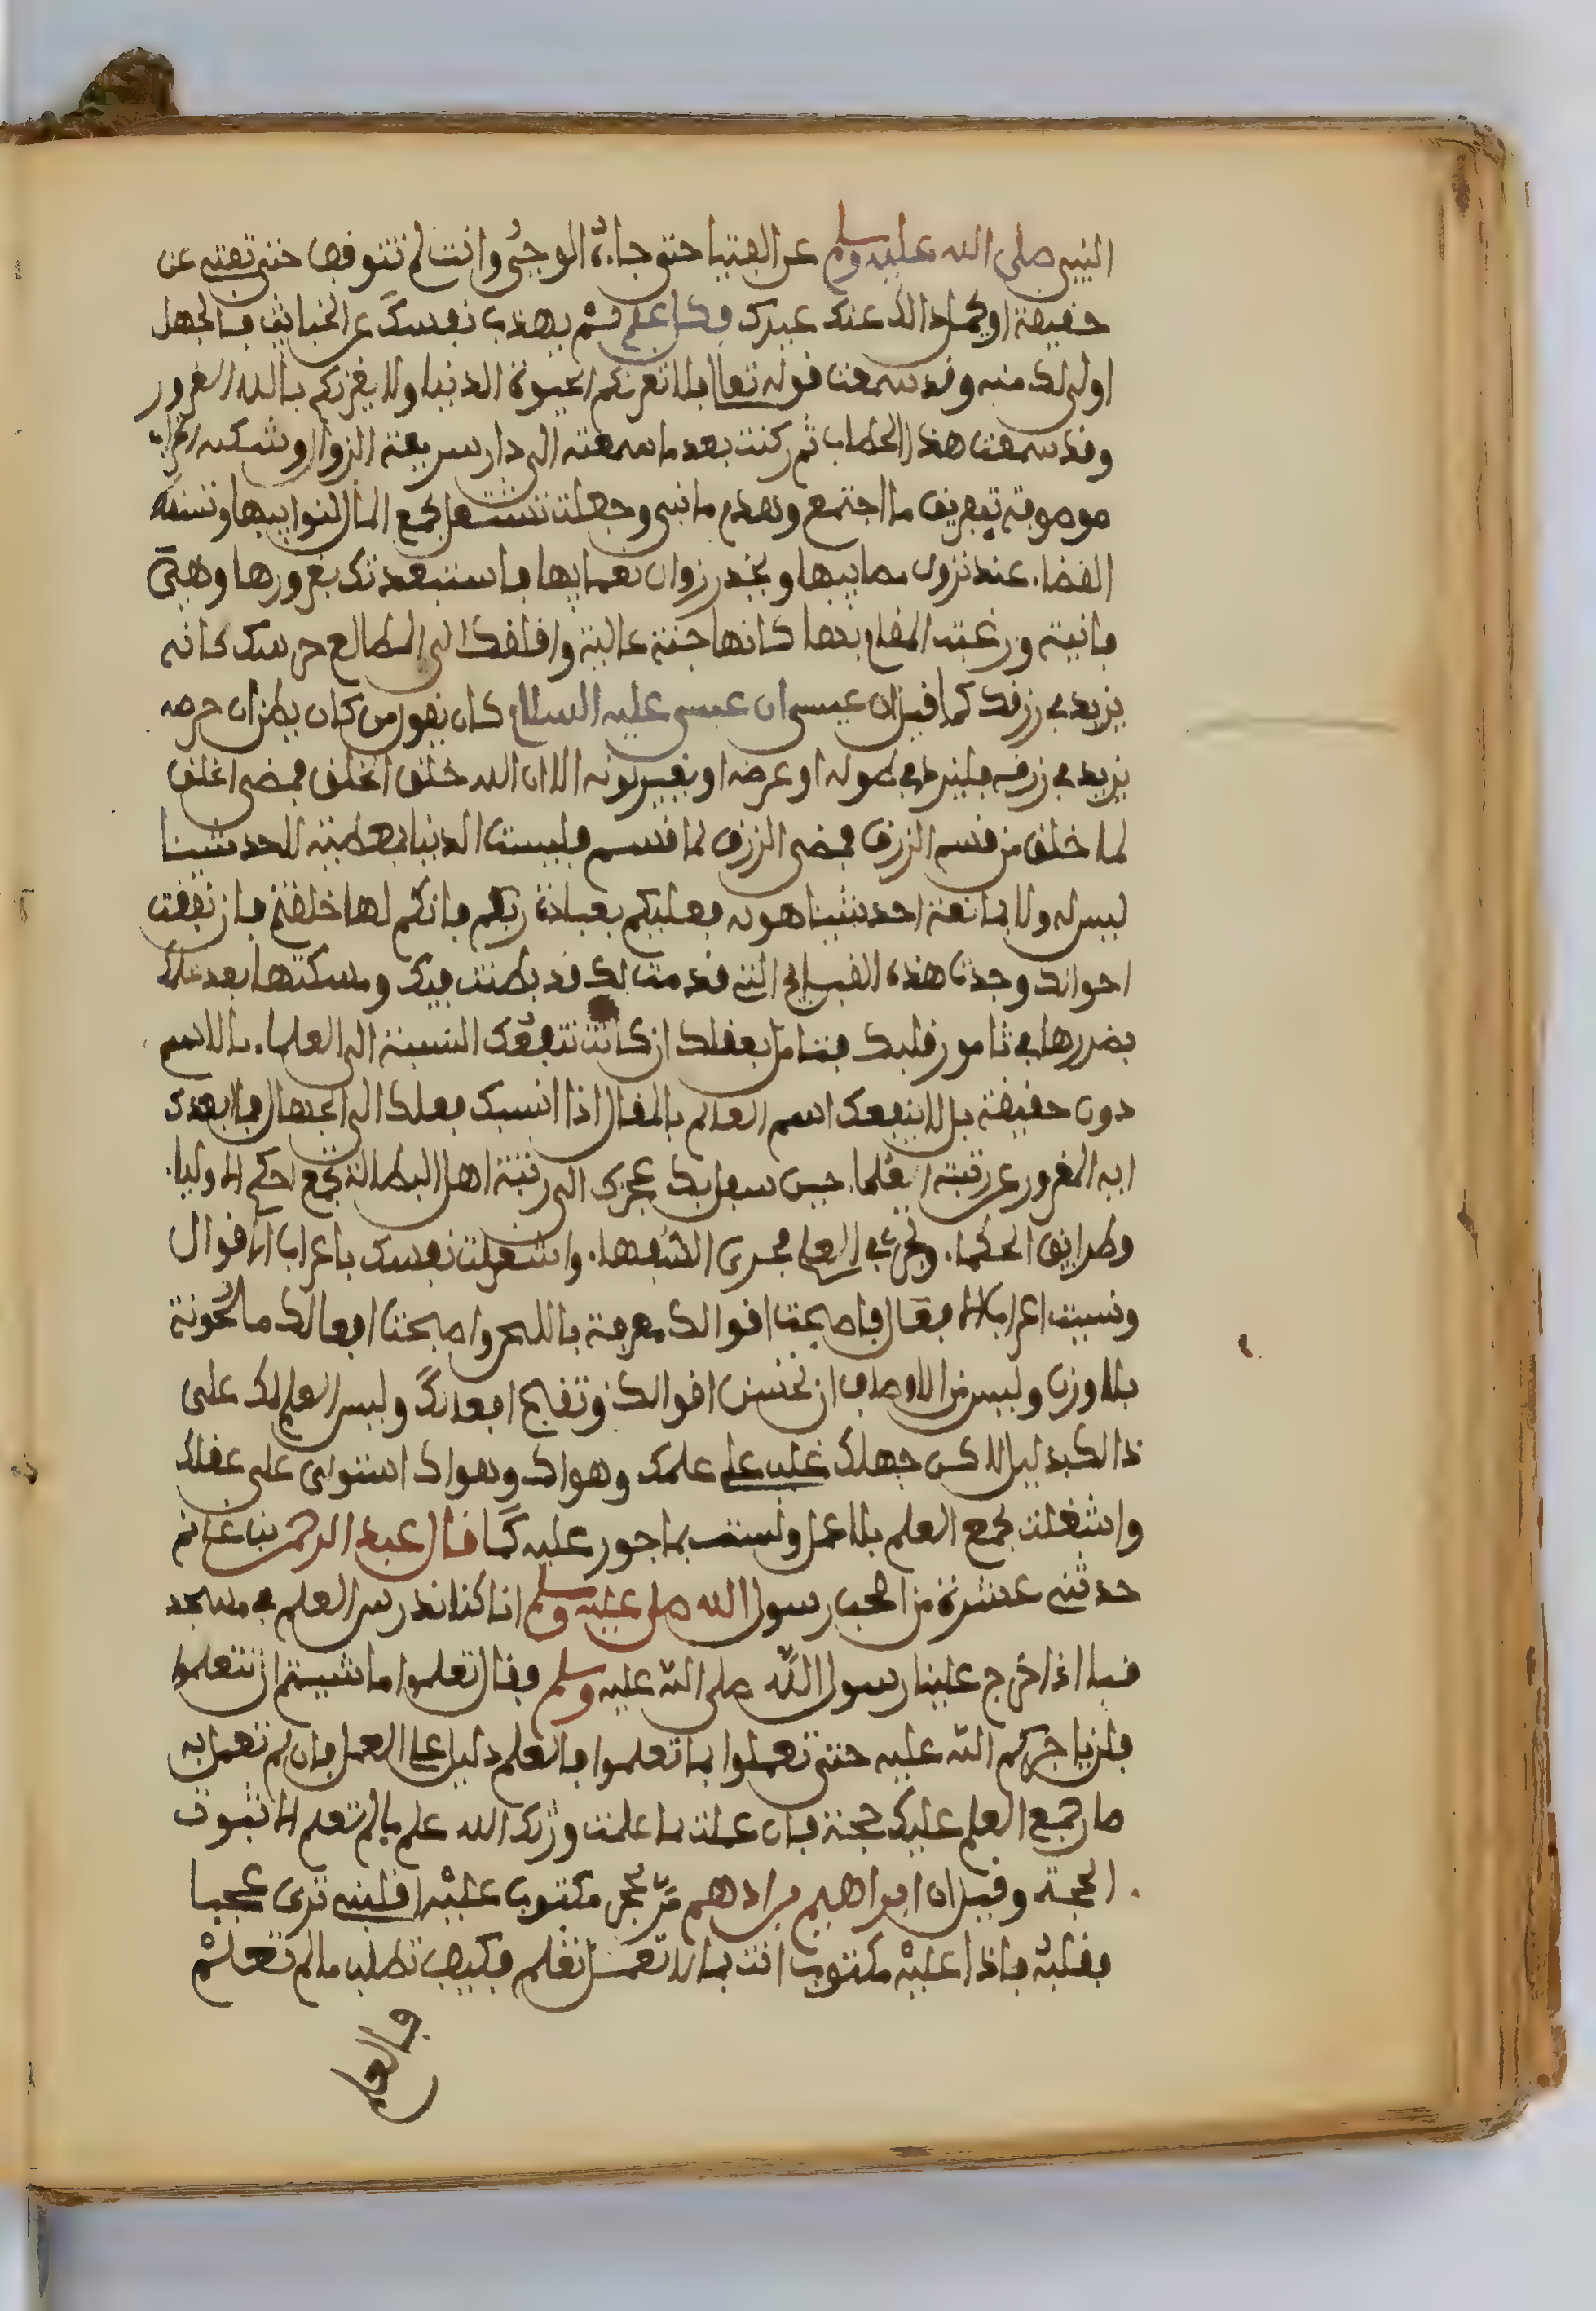 النبي صلى الله عليه وسلم عن الفتيا حتى جاءه الوحي وانت لم تتوقف حتى تفتي عن
حقيقة او يكمل ذالك عندك فكل علم لم يهذب نفسك عن الخبايث فالجهل
اولى لك منه وقد سمعت قوله تعالى فلا تغرنكم الحيوة الدنيا ولا يغرنكم بالله الغرور
وقد سمعت هذا الخطاب ثم ركنت بعد ما سمعته الى دار سريعة الزوال وشيكة
موصوفة بتفريق ما اجتمع وهدم ما بني وجعلت تشتغل بجمع المال لنوايبها وتستقل
القضاء عند نزول مصايبها وتحذر زوال نعمايها فاستعبدتك بغرورها وهي
فانية ورغبت المقام بها كانها جنة عالية واقلقك الى المطامع حرصك كانه
يزيد في رزقك كما قيل ان عيسى ان عيسى عليه السلام كان يقول من كان يظن ان حرصه
يزيد في رزقه فليزد في طوله او عرضه او يغير لونه الا ان الله خلق الخلق فمضى الخلق
لما خلق ثم قسم الرزق فمضى الرزق لما قسم فليست الدنيا بمعطية لاحد شيئا
ليس له ولا بمانعة احد شيئا هو له فعليكم بعبادة ربكم فانكم لها خلقتم فان تفقت
احوالك وجدت هذه القبايح التي قدمت لك قد بطنت فيك ومسكتها بعد علمك
بضررها في تامور قلبك فتامل بعقلك ان كانت تنفعك النسبة الى العلماء بالاسم
دون حقيقة بل لا ينفعك اسم العالم بالمقال اذا انسبك فعلك الى الجهال فما ابعدك
ايه المغرور عن رتبة العلماء حين سفل بك عجزك الى رتبة اهل البطالة تجمع احكم الاوليا
وطرايق الحكماء وتجري في العلم مجرى السفهاء واشغلت نفسك باعراب الاقوال
ونسيت اعراب الافعال فاصبحت اقوالك معربة باللحن واصبحت افعالك ملحونة
بلا وزن وليس من الانصاف ان تحسن اقوالك وتقبح افعالك وليس العلم لك على
ذالك بدليل لاكن جهلك غلب على علمك وهواك وهواك استولى على عقلك
واشغلت بجمع العلم بلا عمل ولست بماجور عليه كما قال عبد الرحمن بن غانم
حدثني عشرة من اصحب رسول الله صلى عليه وسلم انا كنا ندرس العلم في مسجد
قبا اذ اخرج علينا رسول الله صلى الله عليه وسلم فقال تعلموا ما شيتم ان تتعلموا
فلن ياجركم الله عليه حتى تعملوا بما تعلموا فالعلم دليل على العمل فان لم تعمل به
صار جمع العلم عليك حجة فان عملت بما علمت ورثك الله علم ما لم تعلم لا ثبوت
الحجة وقيل ان ابراهيم بن ادهم مر بحجر مكتوب عليه اقلبني ترى عجبا
فقلبه فاذا عليه مكتوب انت بما لا تعمل تعلم فكيف تطلب ما لم تعلم
فالعلم